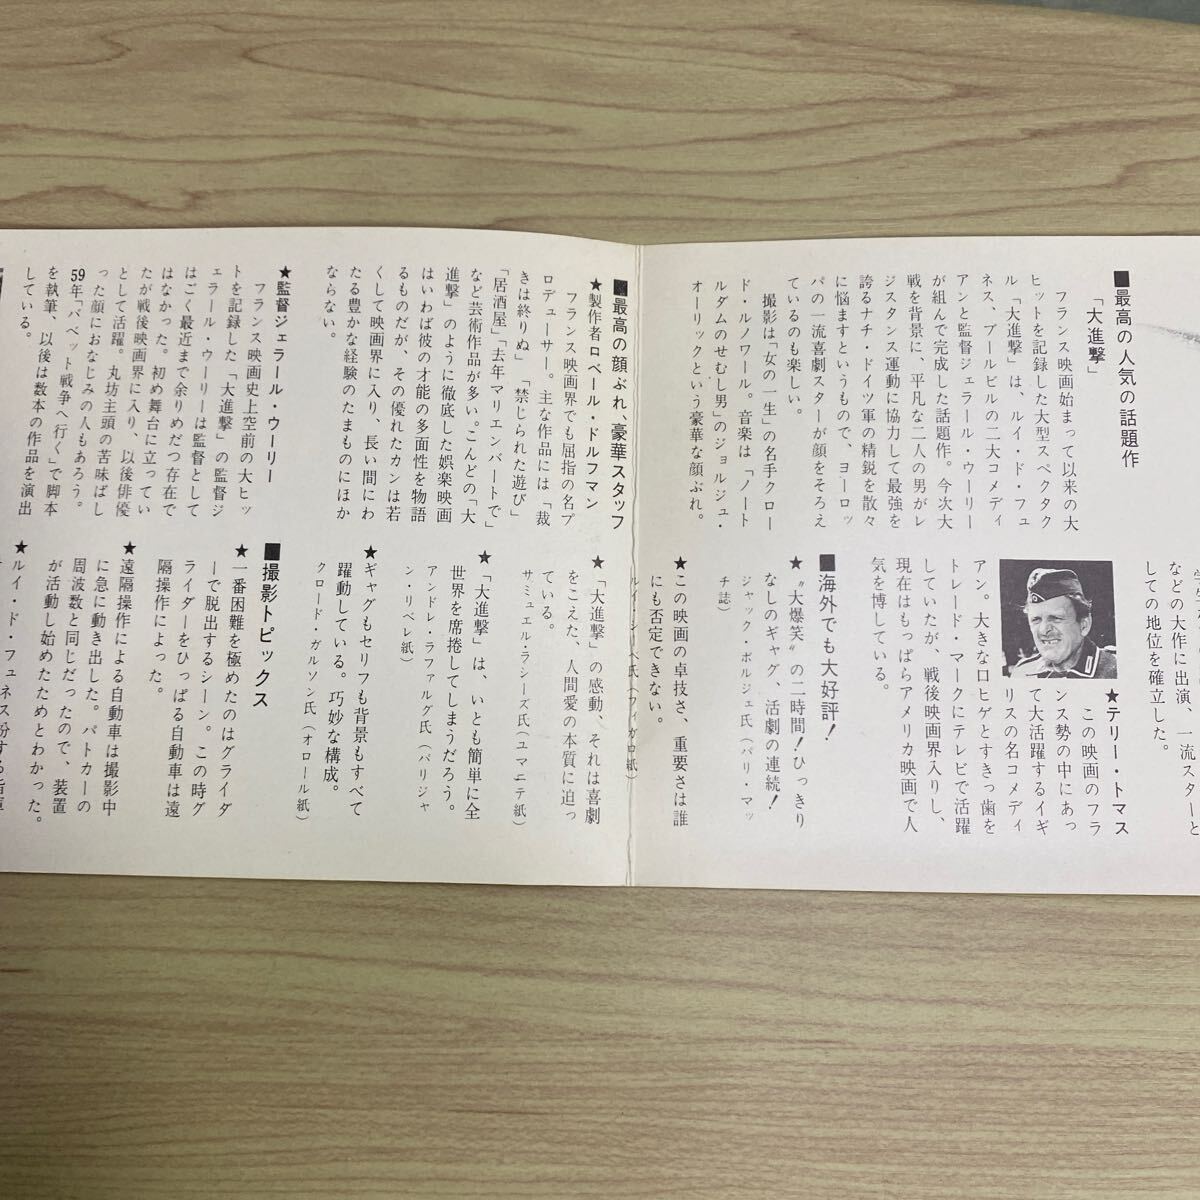 ■最高の人気の話題作
「大進撃」
フランス映画始まって以来の大
ヒットを記録した大型スペクタク
ル「大進撃」は、ルイ・ド・フュ
ネス、ブールビルの二大コメディ
アンと監督ジェラール・ウーリー
が組んで完成した話題作。今次大
戦を背景に、平凡な二人の男がレ
ジスタンス運動に協力して最強を
誇るナチ・ドイツ軍の精鋭を散々
に悩ますというもので、ヨーロッ
パの一流喜劇スターが顔をそろえ
ているのも楽しい。
撮影は「女の一生」の名手クロー
ド・ルノワール。音楽は「ノート
ルダムのせむし男」のジョルジュ・
オーリックという豪華な顔ぶれ。
などの大作に出演、一流スターと
しての地位を確立した。
★テリー・トマス
この映画のフラ
ンス勢の中にあっ
て大活躍するイギ
リスの名コメディ
アン。大きな口ヒゲとすきっ歯を
トレード・マークにテレビで活躍
していたが、戦後映画界入りし、
現在はもっぱらアメリカ映画で人
気を博している。
■海外でも大好評！
★〝大爆笑〟の二時間！ひっきり
なしのギャグ、活劇の連続！
ジャック・ボルジェ氏（パリ・マッ
チ誌）
★この映画の卓技さ、重要さは誰
にも否定できない。
氏（フィガロ紙）
■最高の顔ぶれ、豪華スタッフ
★製作者ロベール・ドルフマン
フランス映画界でも屈指の名プ
ロデューサー。主な作品には「裁
きは終りぬ」「禁じられた遊び」
「居酒屋」「去年マリエンバートで」
など芸術作品が多い。こんどの「大
進撃」のように徹底した娯楽映画
はいわば彼の才能の多面性を物語
るものだが、その優れたカンは若
くして映画界に入り、長い間にわ
たる豊かな経験のたまものにほか
ならない。
★監督ジェラール・ウーリー
フランス映画史上空前の大ヒッ
トを記録した「大進撃」の監督ジ
ェラール・ウーリーは監督として
はごく最近まで余りめだつ存在で
はなかった。初め舞台に立ってい
たが戦後映画界に入り、以後俳優
として活躍。丸坊主頭の苦味ばし
った顔におなじみの人もあろう。
59年「バベット戦争へ行く」で脚本
を執筆、以後は数本の作品を演出
している。
★「大進撃」の感動、それは喜劇
をこえた、人間愛の本質に迫っ
ている。
サミュエル・ラシーズ氏（ユマニテ紙）
★「大進撃」は、いとも簡単に全
世界を席捲してしまうだろう。
アンドレ・ラファルグ氏（パリジャ
ン・リベレ紙）
★ギャグもセリフも背景もすべて
躍動している。巧妙な構成。
クロード・ガルソン氏（オロール紙）
■撮影トピックス
★一番困難を極めたのはグライダ
ーで脱出するシーン。この時グ
ライダーをひっぱる自動車は遠
隔操作によった。
★遠隔操作による自動車は撮影中
に急に動き出した。パトカーの
周波数と同じだったので、装置
が活動し始めたためとわかった。
★ルイ・ド・フュネス扮する指揮